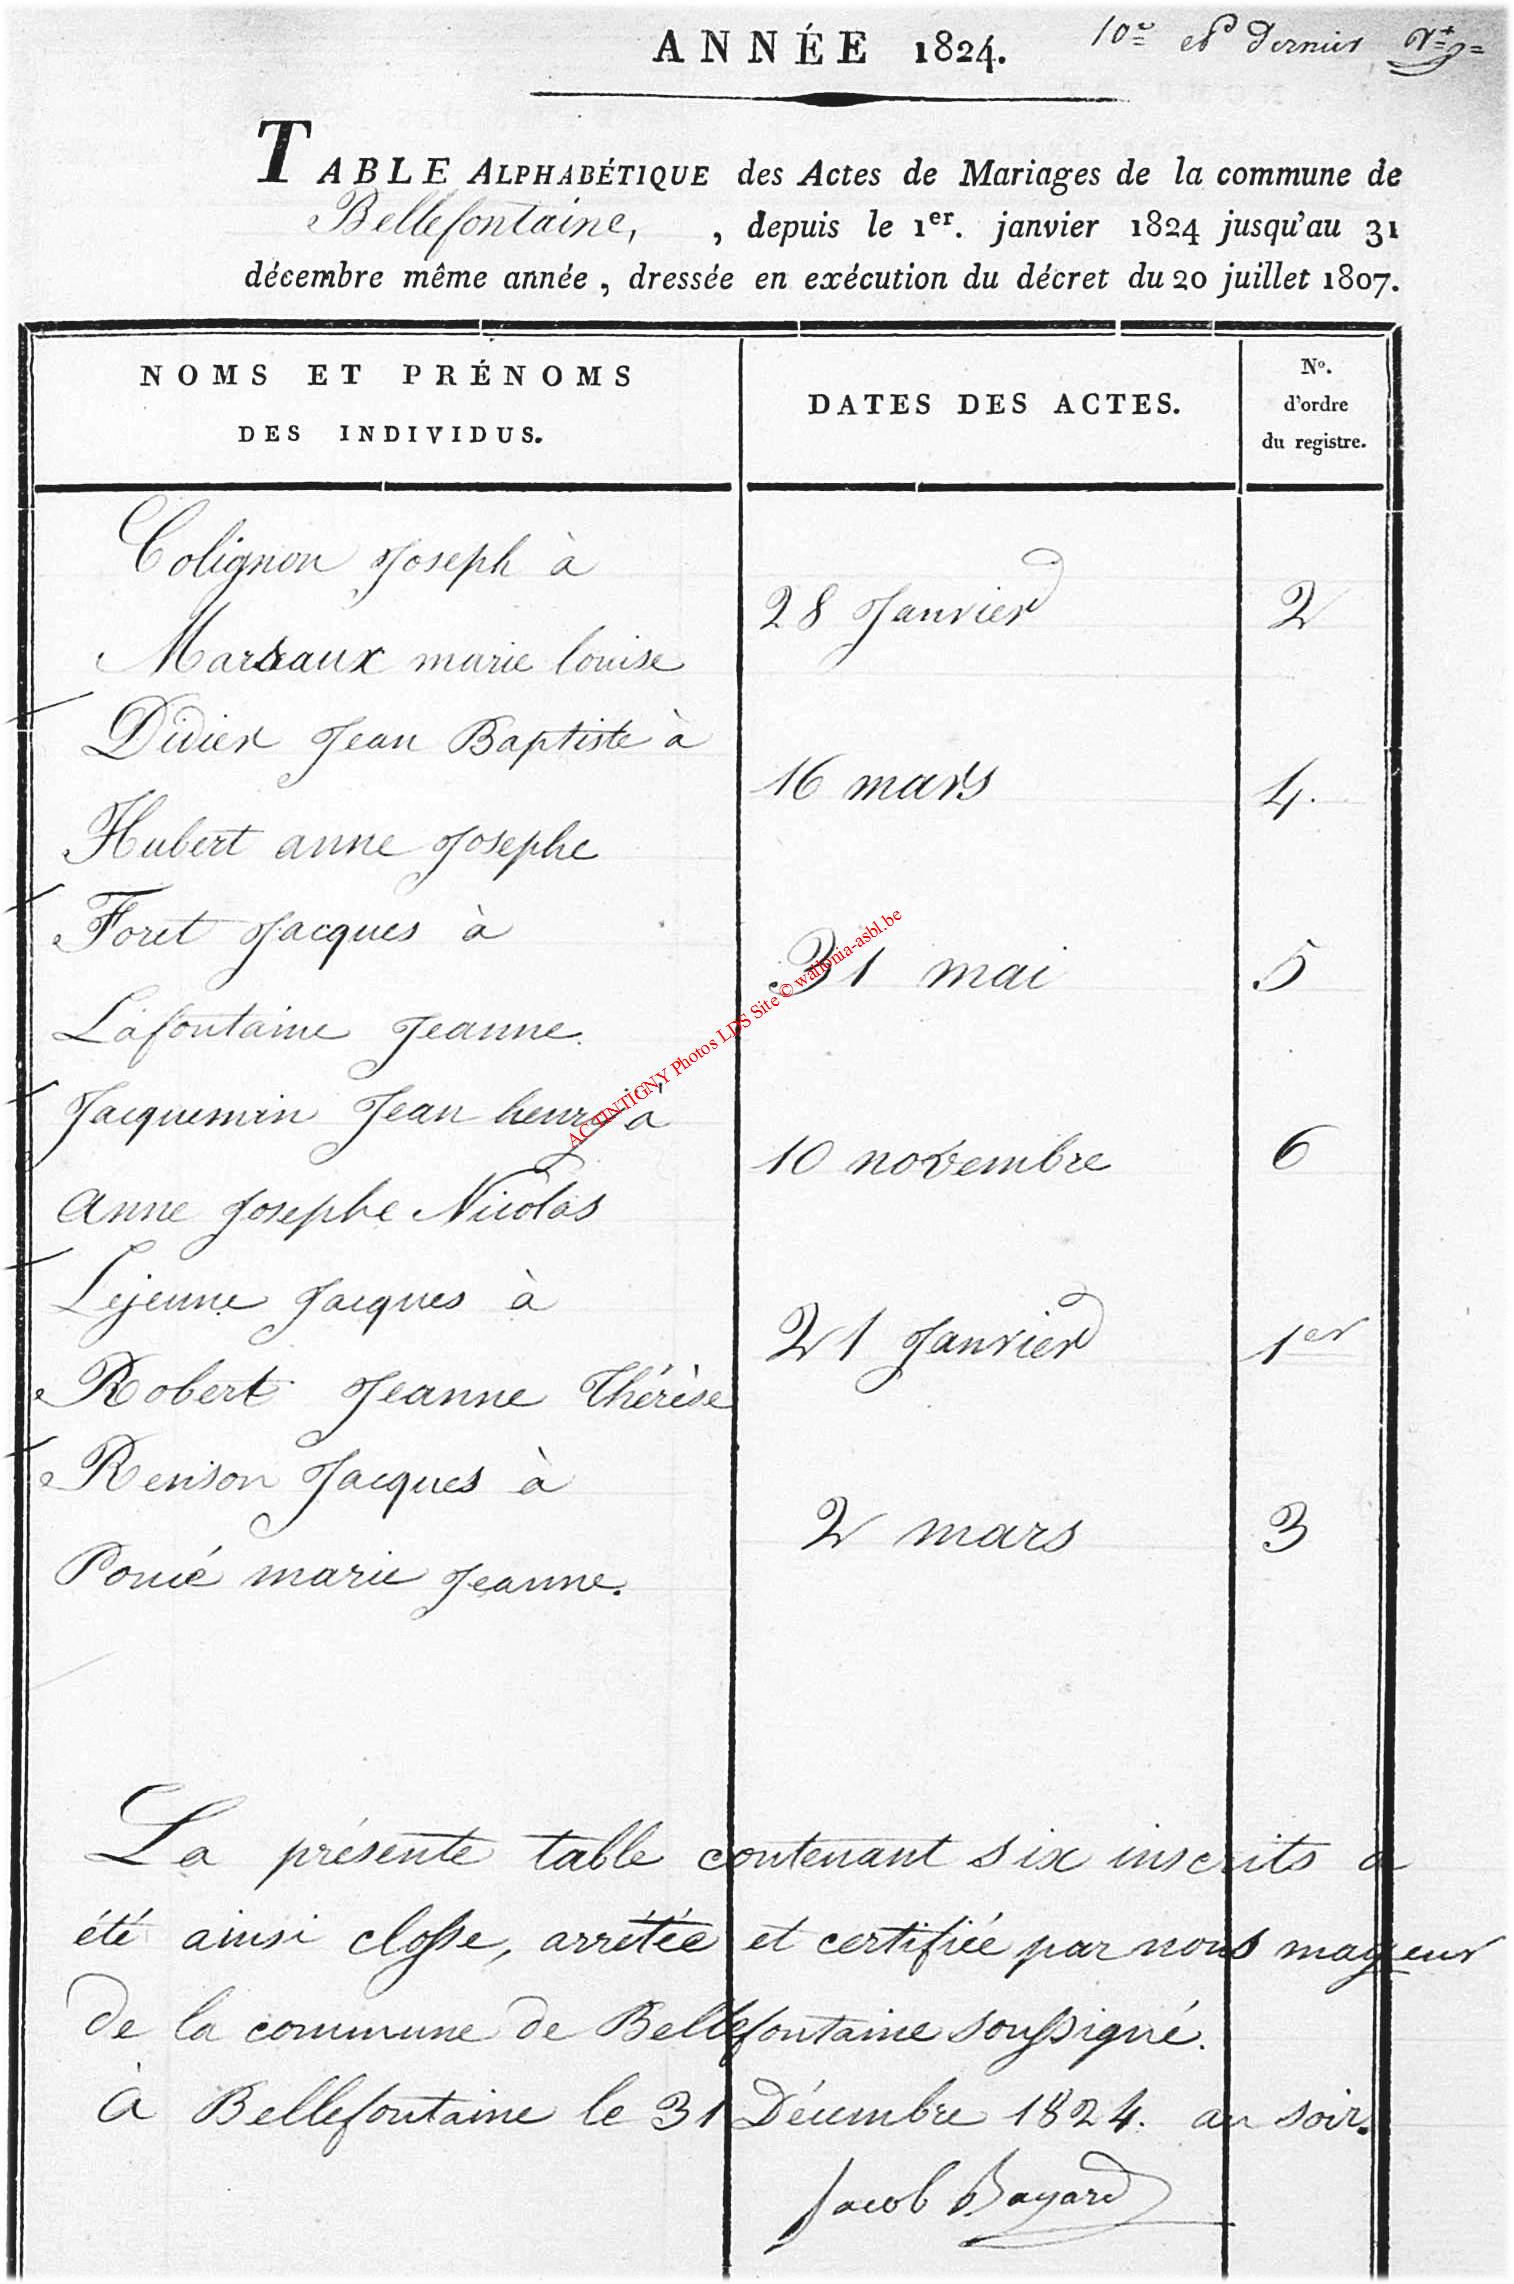 ANNÉE 1824.
10e et Dernier
TABLE ALPHABÉTIQUE des Actes de Mariages de la commune de
Bellefontaine, , depuis le 1er. janvier 1824 jusqu'au 31
décembre même année, dressée en exécution du décret du 20 juillet 1807.
NOMS ET PRÉNOMS
DES INDIVIDUS.
DATES DES ACTES.
No.
d'ordre
du registre.
Colignon Joseph à
28 Janvier 2
Marsaux marie louise
Didier Jean Baptiste à
16 mars 4.
Hubert anne Josephe
Foret Jacques à
31 mai 5
Lafontaine Jeanne.
Jacquemin Jean henry à
10 novembre 6
anne Josephe Nicolas
Lejeune Jacques à
21 Janvier 1er
Robert Jeanne Thérèse
Renson Jacques à
2 mars 3
marie Jeanne.
La présente table contenant six inscrits a
été ainsi closse, arrêtée et certifiée par nous mayeur
de la commune de Bellefontaine soussigné.
à Bellefontaine le 31 Décembre 1824. au soir.
Jacob Bayard
ACTINTIGNY Photos LDS Site © wallonia-asbl.be